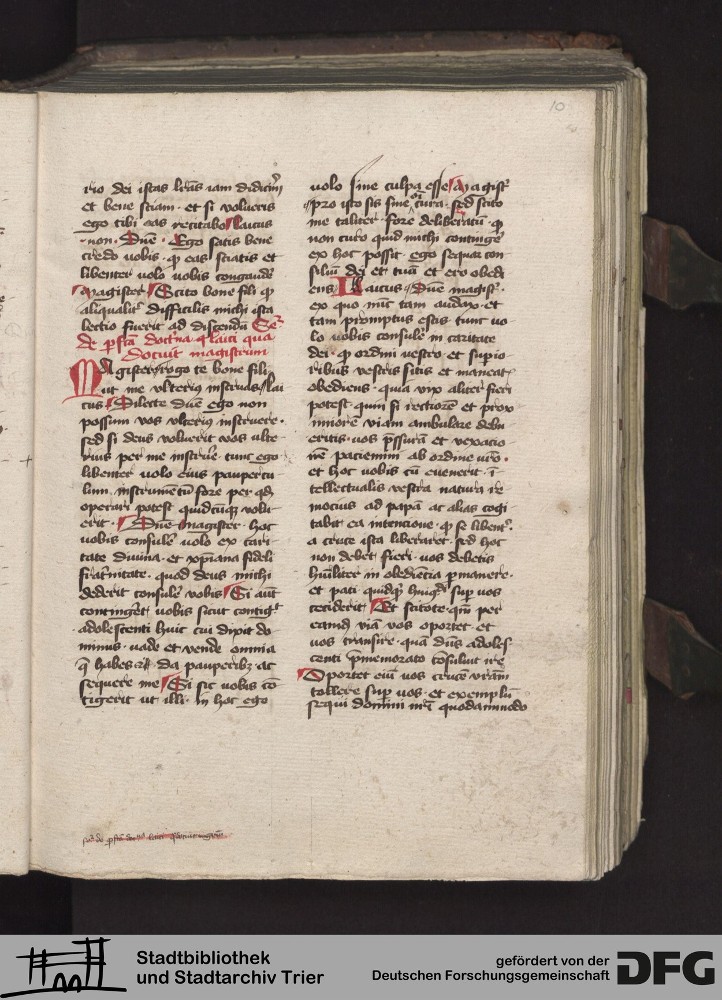 10
rio dei istas lr̃as iam didicim9
et bene sciam · et si volueris
ego tibi eas recitabo laicus
· non · Dñe · Ego satis bene
credo vobis · qꝫ eas sciatis et
libenter volo vobis congaudẽ
magister Scito bone fili qꝫ
aliqualit̃ difficilis michi ista
lectio fuerit ad discendũ Se
de ꝑfc̃a doct̾na q̃ laici qua
docuit magistrum
Magister rogo te bone fili
ut me vlteriꝰ instruas Lai
cus Dilecte dñe ego non
possum vos vlteriꝰ instruere ·
sed si deus voluerit vos vlte
rius per me instrue̾ · tunc ego
libenter volo eius paupercu
lum · instrumẽtũ fore per qd̃
operari potest quidcũqꝫ volu
erit · Dñe magister · hoc
vobis consule̾ volo ex cari
tate diuina · et xp̃iana fideli
frat̾nitate · quod deus michi
dederit consule̾ vobis Si aũt
continge̾t vobis sicut contigit
· adolescenti huic cui dixit do
minus · vade et vende omnia
q̃ habes et da pauperibꝫ · ac
sequere me Si sic vobis cõ
tigerit ut illi · In hoc ego
volo sine culpa esse Magist̾
pro isto sis sine cura · sed scito
me taliter · fore deliberatũ · qꝫ
non curo quid michi continge̾
ex hoc possit ego sequar con
siliũ dei et tuũ et ero obedi
ens Laicus Dñe magist̾ ·
ex quo nũc tam audax · et
tam promptus estis tunc vo
lo vobis consule̾ in caritate
dei · qꝫ ordini vestro et supio
ribus vestris sitis et maneat̾
obediens · quia vix aliter fieri
potest · quin si rectiorẽ et prox
imiorẽ viam ambulare debu
eritis · vos p̃ssurã et vexacio
nẽ paciemini ab ordine vr̃o ·
et hoc vobis cũ euenerit · ĩ
tellectualis vestra natura re
mocius ad papã ac alias cogi
tabit ea intencione · qꝫ se libent̾ ·
a cruce ista liberaret · sed hoc
non debet fieri · vos debetis
hũiliter in obediẽcia ꝑmanere ·
et pati quidquid huiꝰ sup vos
ceciderit Et scitote · qm̃ per
eãmd viã vos oportet · et
vos transire · quã dñs adoles
centi p̃memorato cõsuluit ire
Oportet eni vos crucẽ vr̃am
tollere sup vos · et exemplũ
sequi domini nr̃i quodammodo
Stadtbibliothek
und Stadtarchiv Trier
gefördert von der
Deutschen Forschungsgemeinschaft
DFG